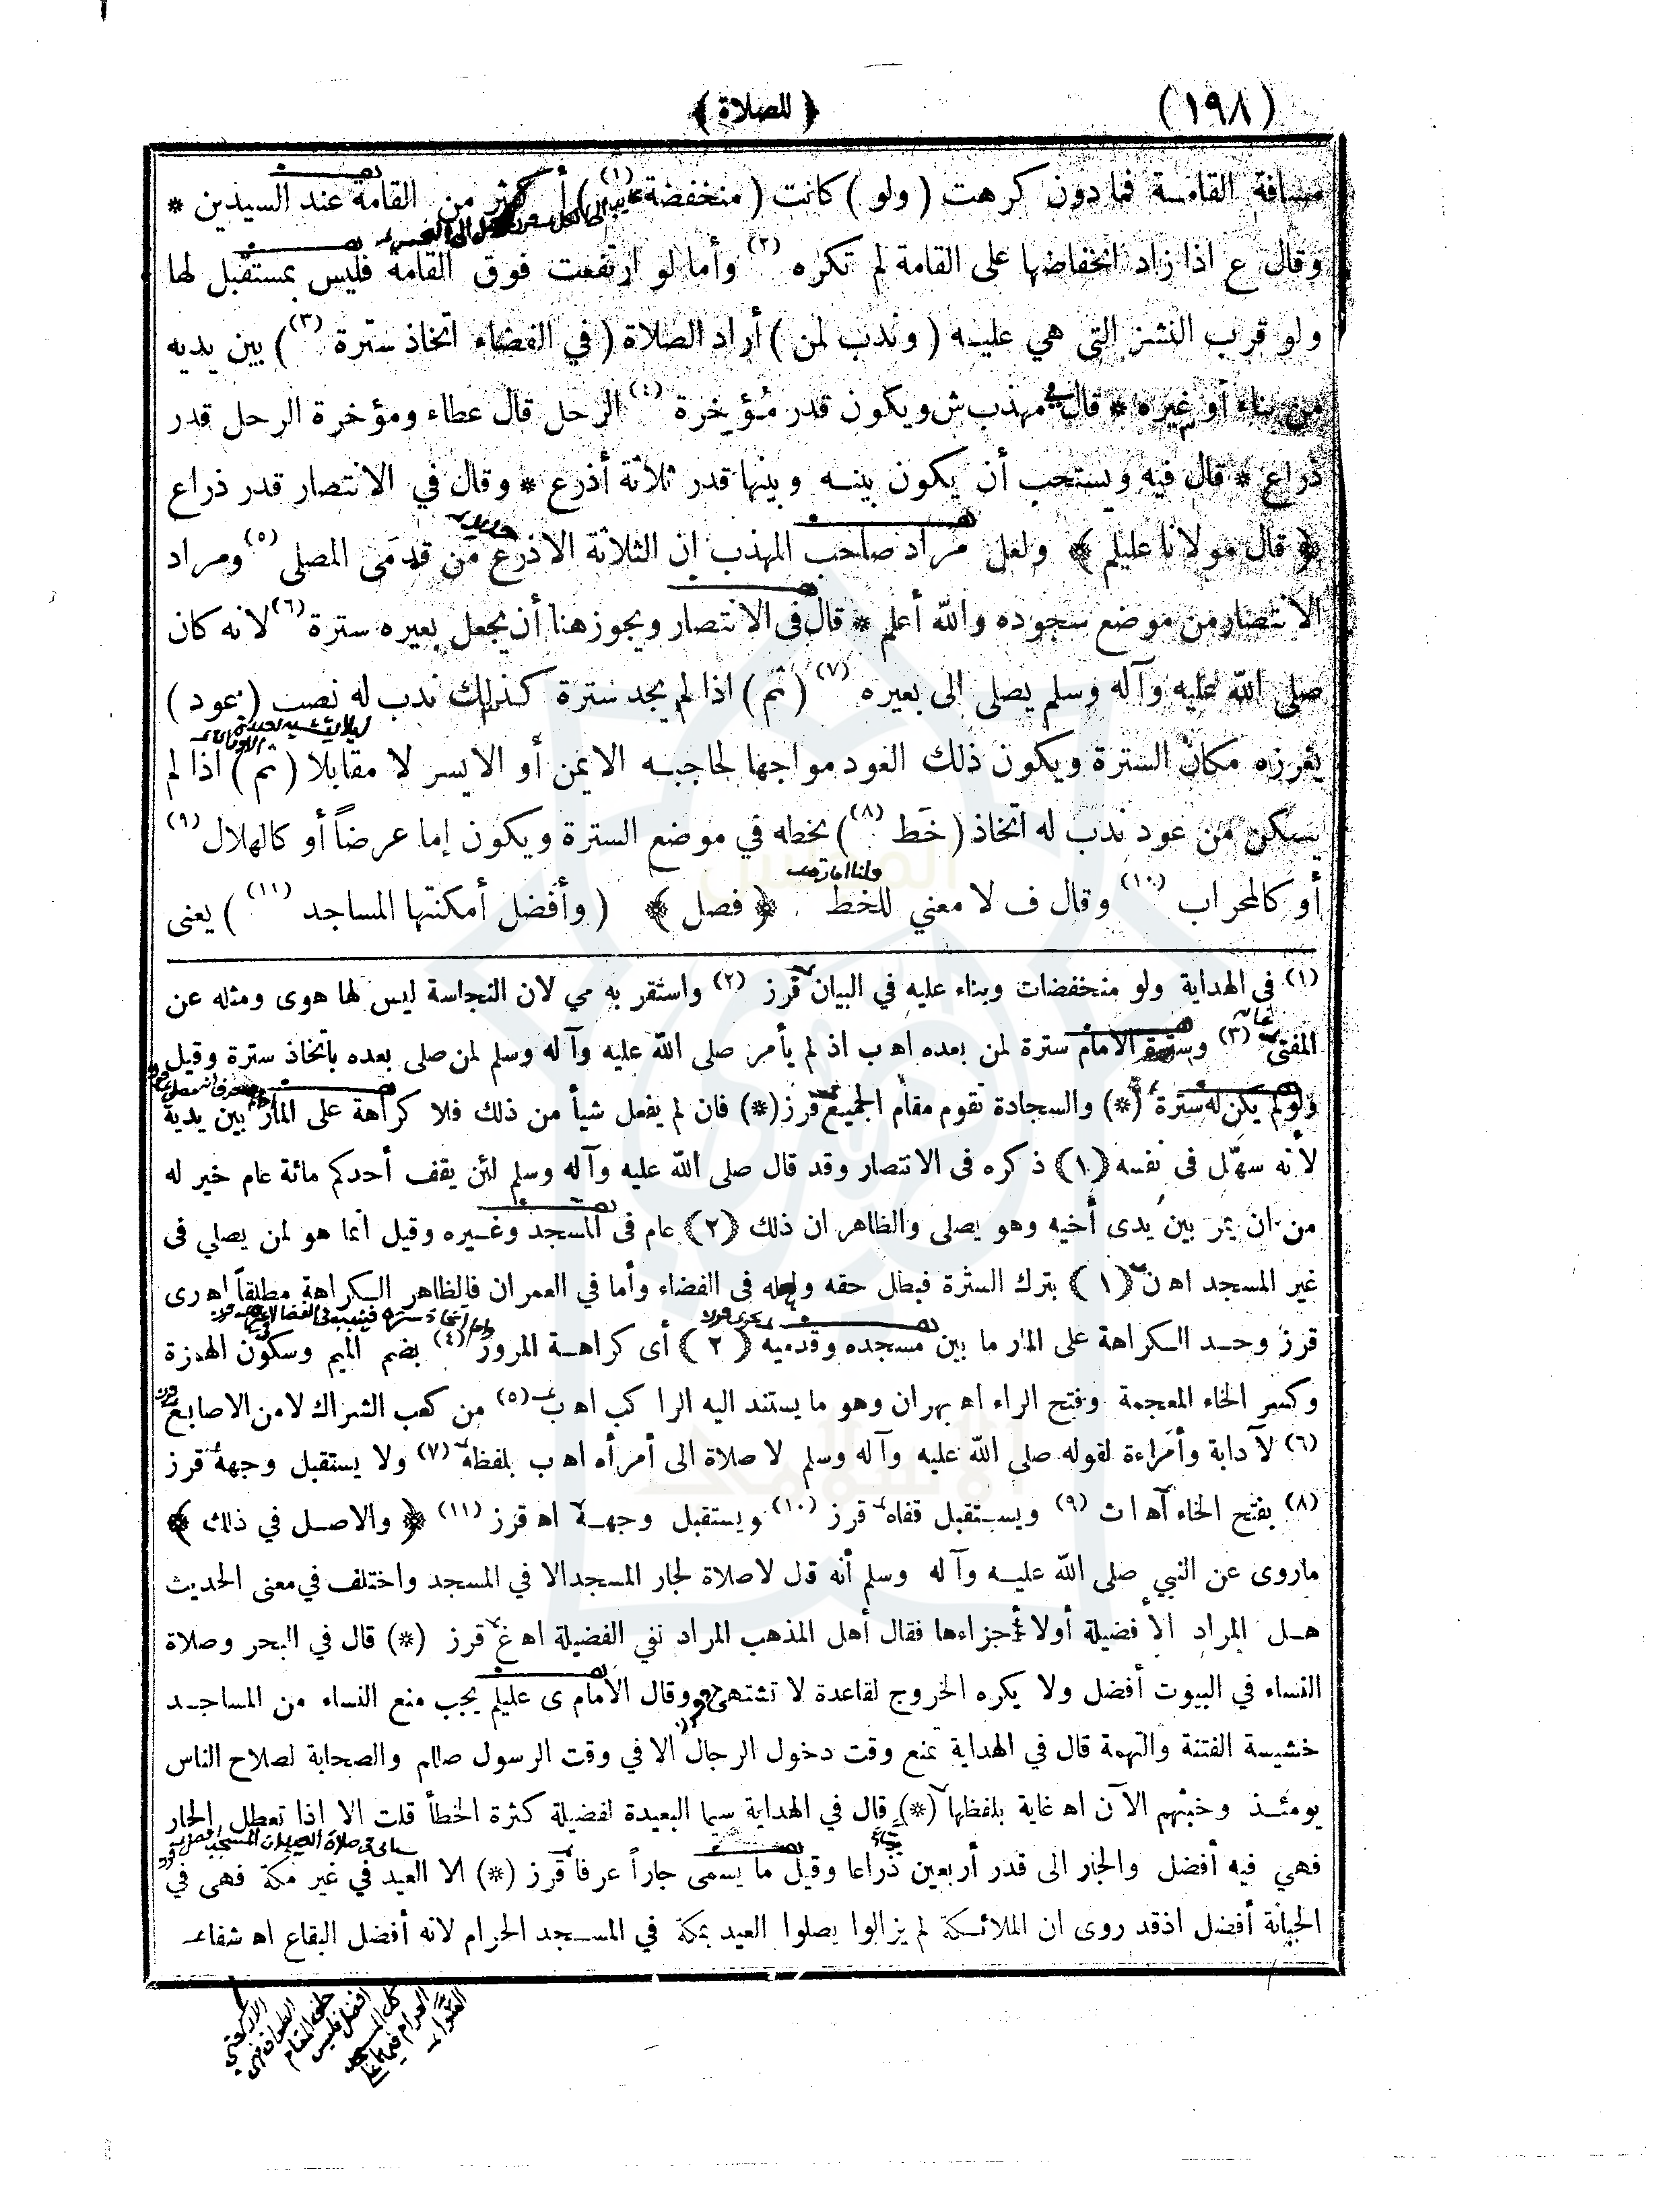 (١٩٨)
﴿ للصلاة ﴾
مسافة القامة فما دون كرهت ( ولو ) كانت ( منخفضة (١) ) أكثر من القامة عند السيدين *
وقال ع اذا زاد انخفاضها على القامة لم تكره (٢) وأما لو ارتفعت فوق القامة فليس بمستقبل لها
ولو قرب النشز التى هي عليه ( وندب لمن ) أراد الصلاة ( في الفضاء اتخاذ سترة (٣) ) بين يديه
من بناء أو غيره * قال في مهذب ش ويكون قدر مؤخرة (٤) الرحل قال عطاء ومؤخرة الرحل قدر
ذراع * قال فيه ويستحب أن يكون بينه وبينها قدر ثلاثة أذرع * وقال في الانتصار قدر ذراع
﴿ قال مولانا عليلم ﴾ ولعل مراد صاحب المهذب ان الثلاثة الاذرع من قدمى المصلى (٥) ومراد
الانتصار من موضع سجوده والله أعلم * قال فى الانتصار ويجوز هنا أن يجعل بعيره سترة (٦) لانه كان
صلى الله عليه وآله وسلم يصلى الى بعيره (٧) ( ثم ) اذا لم يجد سترة كذلك ندب له نصب ( عود )
يغرزه مكان السترة ويكون ذلك العود مواجها لحاجبه الايمن أو الايسر لا مقابلا ( ثم ) اذا لم
يتمكن من عود ندب له اتخاذ ( خَط (٨) ) يخطه في موضع السترة ويكون إما عرضاً أو كالهلال (٩)
أو كالمحراب (١٠) وقال ف لا معني للخط . ﴿ فصل ﴾ ( وأفضل أمكنتها المساجد (١١) ) يعنى
(١) فى الهداية ولو منخفضات وبناء عليه في البيان قرز (٢) واستقر به مي لان النجاسة ليس لها هوى ومثله عن
المفتى (٣) وسترة الامام سترة لمن بعده اه ب اذ لم يأمر صلى الله عليه وآله وسلم لمن صلى بعده باتخاذ سترة وقيل
ولو لم يكن له سترة (*) والسجادة تقوم مقام الجميع قرز (*) فان لم يفعل شيأ من ذلك فلا كراهة على المار بين يديه
لانه سهّل فى نفسه (١) ذكره فى الانتصار وقد قال صلى الله عليه وآله وسلم لئن يقف أحدكم مائة عام خير له
من ان يمر بين يدى أخيه وهو يصلى والظاهر ان ذلك (٢) عام فى المسجد وغيره وقيل انما هو لمن يصلي فى
غير المسجد اه ن (١) بترك السترة فبطل حقه ولعله فى الفضاء وأما في العمران فالظاهر الكراهة مطلقاً اه رى
قرز وحد الكراهة على المار ما بين مسجده وقدميه (٢) أى كراهة المرور (٤) بضم الميم وسكون الهمزة
وكسر الخاء المعجمة وفتح الراء اه بهران وهو ما يستند اليه الراكب اه ب (٥) من كعب الشراك لا من الاصابع
(٦) لا دابة وامراءة لقوله صلى الله عليه وآله وسلم لا صلاة الى أمرأه اه ب بلفظه (٧) ولا يستقبل وجهه قرز
(٨) بفتح الخاء اه اث (٩) ويستقبل قفاه قرز (١٠) ويستقبل وجهه اه قرز (١١) ﴿ والاصل في ذلك ﴾
ماروى عن النبي صلى الله عليه وآله وسلم أنه قال لا صلاة لجار المسجد الا في المسجد واختلف في معنى الحديث
هل المراد الأفضيلة أولا أجزاءها فقال أهل المذهب المراد نفي الفضيلة اه غ قرز (*) قال في البحر وصلاة
النساء في البيوت أفضل ولا يكره الخروج لقاعدة لا تشتهى وقال الامام ى عليلم يجب منع النساء من المساجد
خشيسة الفتنة والتهمة قال في الهداية تمنع وقت دخول الرجال الا في وقت الرسول صللم والصحابة لصلاح الناس
يومئذ وخبثهم الآن اه غاية بلفظها (*) قال في الهداية سيما البعيدة لفضيلة كثرة الخطأ قلت الا اذا تعطل الجار
فهي فيه أفضل والجار الى قدر أربعين ذراعا وقيل ما يسمى جاراً عرفا قرز (*) الا العيد في غير مكة فهى في
الجبانة أفضل اذ قد روى ان الملائكة لم يزالوا يصلوا العيد بمكة في المسجد الحرام لانه أفضل البقاع اه شفاء